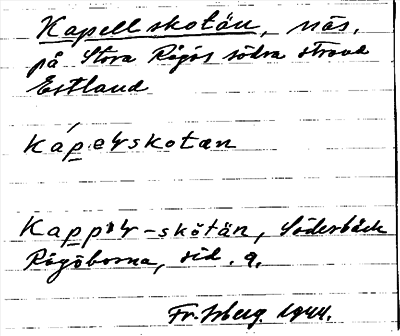 Kapellskotän, näs,
på Stora Rågös södra strand
Estland
Kápelskotan
Kappəl-skötän, Söderbäck
Rågöborna, sid. 9.
1944.